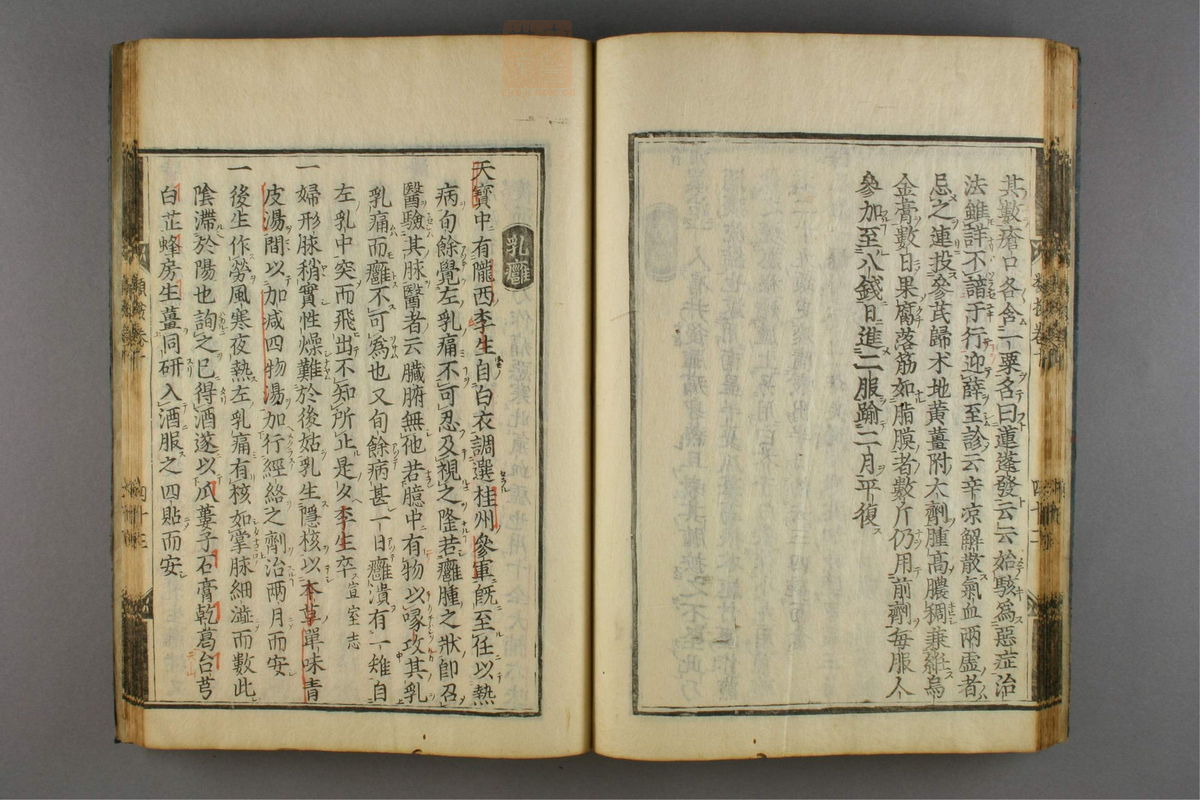 其數瘡口各含一粟名曰蓮蓬發云云始駭為惡症治
法雖詳不諳于行迎薛至診云辛凉解散氣血兩虛者
忌之連投參芪歸朮地黃薑附大劑腫高膿稠兼維烏
金膏數日果腐落筋如脂膜者數斤仍用前劑每服人
參加至八錢日進二服踰二月平復
乳癰
天寶中有隴西李生自白衣調選桂州參軍既至任以熱
病旬餘覺左乳痛不可忍及視之隆若癰腫之狀即召
醫驗其脉醫者云臟腑無他若臆中有物以喙攻其乳
乳痛而癰不可為也又旬餘病甚一日癰潰有一雉自
左乳中突而飛出不知所止是夕李生卒 宣室志
一婦形脉稍實性燥難於後姑乳生隱核以本草單味青
皮湯間以加减四物湯加行經絡之劑治兩月而安
一後生作勞風寒夜熱左乳痛有核如掌脉細澁而數此
陰滯於陽也詢之已得酒遂以瓜蔞子石膏乾葛台芎
白芷蜂房生薑同研入酒服之四貼而安
類案卷十
四十二
類案卷十
四十三